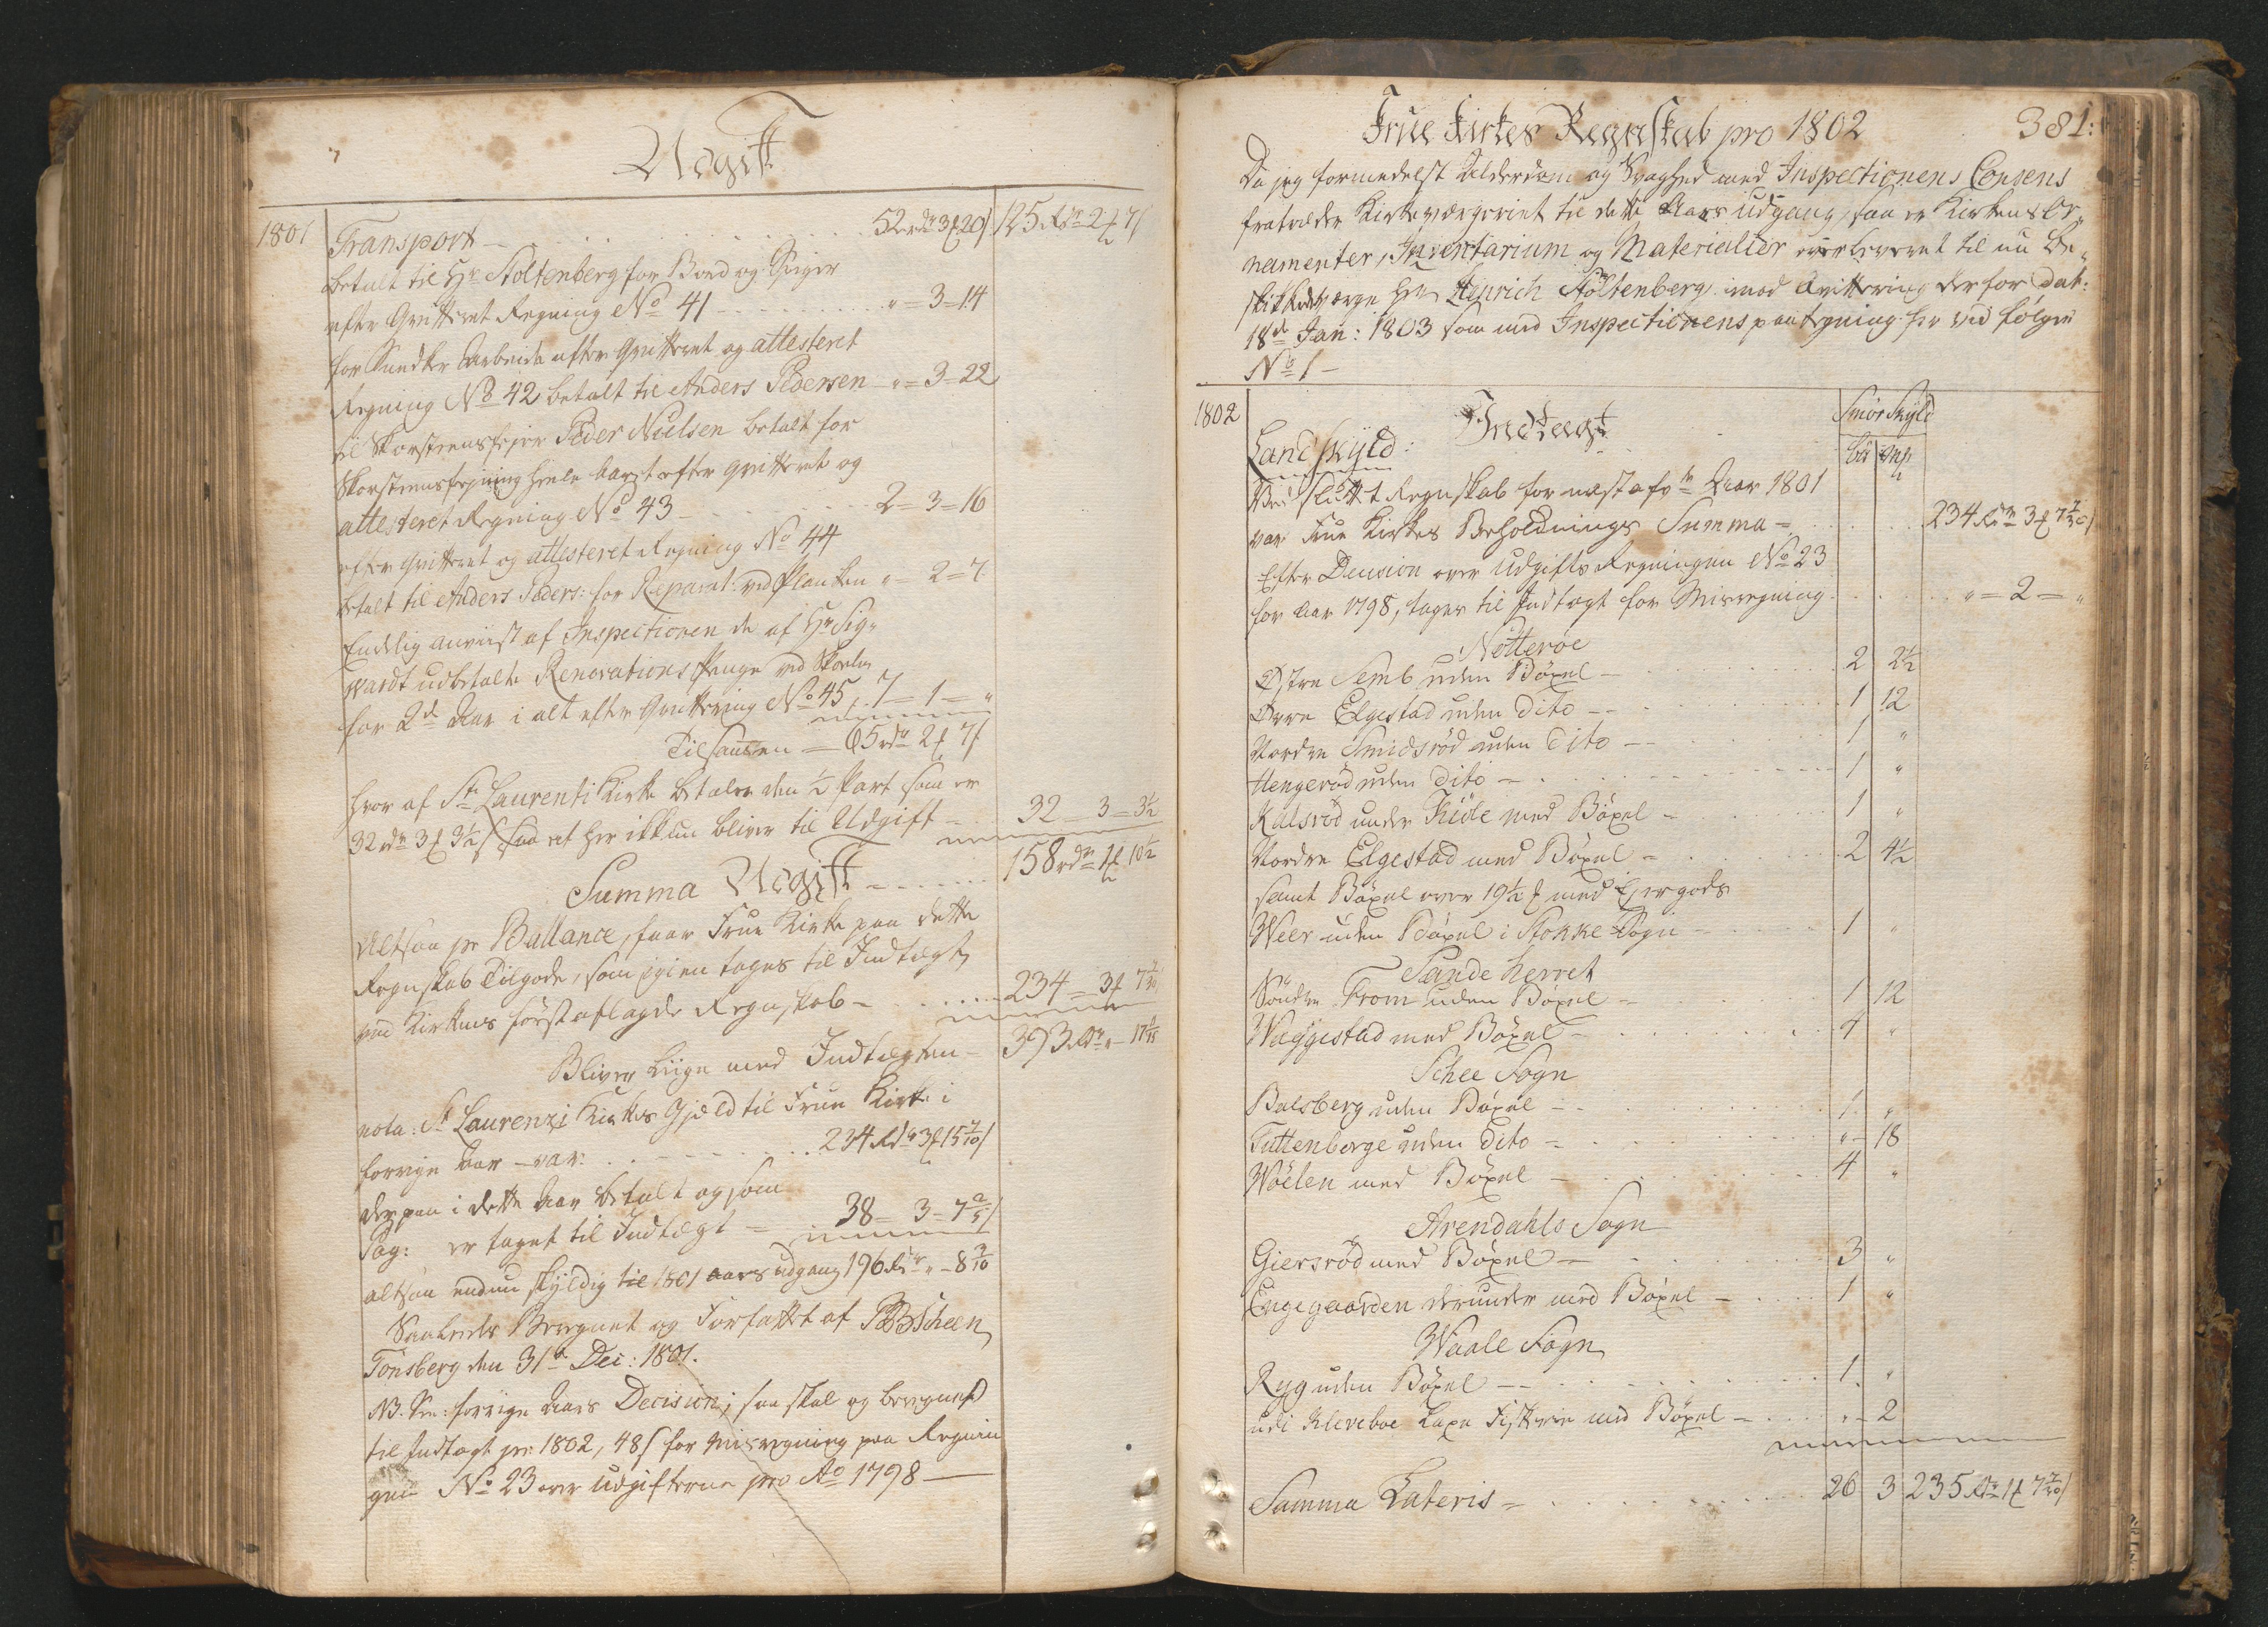 Udgift
1801 Transport 52 rdr 3 ʄ 20 s 125 Rdr 2 ʄ 7 s
betalt til Hr Stoltenberg for Bord og Spiger
efter Qvitteret Regning No 41 " = 3 = 14
for Smedke Arbeide efter Qvitteret og attesteret
Regning No 42 betalt til Anders Pedersen " = 3 = 22
til Skorsteensfeyer Peder Nielsen betalt for
Skorsteensfeyning heele Aaret efter qvitteret og
attesteret Regning No 43 2 = 3 = 16
efter Qvitteret og attesteret Regning No 44
betalt til Anders Peders: for Reparat: ved Planken " = 2 = 7
Endelig anviist af Inspectionen de af Hr Sig-
wardt udbetalte Renovations Penge ved Skoelen
for 2de Aar i alt efter Qvittering No 45, 7 = 1 = "
Tilsammen = 65 rdr 2 ʄ 7 s
hvor af St Laurenti Kirke betaler den ½ Part som er
32 rdr 3 ʄ 3½ s saa at her ikkun bliver til Udgift = 32 = 3 = 3½
Summa Udgift 158 rdr 1 ʄ 10½
Altsaa pr Ballance, faar Frue Kirke paa dette
Regnskab Tilgode, som igien tages til Indtægt
paa Kirkens først aflagde Regnskab 234 = 3 ʄ 7
Bliver Liige med Indtægten 393 Rdr " 17
nota: St Laurenzi Kirkes Gjæld til Frue Kirke i
forrige Aar var 234 Rdr 3 ʄ 15 7/10 s
derpaa i dette Aar betalt og som
Pag: er taget til Indtægt = 38 = 3 = 7 2/5 s
altsaa endnu skyldig til 1801 Aars udgang 196 Rdr " = 8 3/10
Saaledes Beregnet og Forfattet af PBScheen
Tönsberg den 31te Dec: 1801.
NB. forrige Aars Decision; saa skal og beregnes
til Indtægt pr 1802, 48 s for Misregning paa Regnin
gen No 23 over Udgifterne pro Ao 1798
Frue Kirkes Regnskab pro 1802 381:
Da jeg formedelst Alderdom og Svaghed med Inspectionens Consens
fratræder Kirkeværgeriet til dette Aars Udgang, saa er Kirkens Or-
namenter, Inventarium og Materialier overleveret til nu be-
skikkede værge Hr Henrich Stoltenberg imod Qvittering derfor dat:
18de Jan: 1803 som med Inspectionens paategning her ved følger
No 1
1802 Indtægt Smörskyld
Landskyld: bd
Ved sluttet Regnskab for næst afv: Aar 1801
var Frue Kirkes Beholdnings Summa = 234 Rdr 3 ʄ 7 s
Efter Decision over Udgifts Regningen No 23
for Aar 1798, tages til Indtægt for Misregning " = 2 = "
Nötteröe
Östre Semb uden Böxel 2 2½
Övre Elgestad uden Dito 1 12
Nordre Smidsröd uden Dito 1 "
Hengeröd uden Dito 1 "
Kalsröd under Kiöle med Böxel 1 "
Nordre Elgestad med Böxel 2 4½
samt Böxel over 19½ ʄ med Eiergods
Weer uden Böxel i Stokke Sogn 1 "
Sande herret
Söndre From uden Böxel 1 12
Waggestad med Böxel 4 "
Schee Sogn
Balsberg uden Böxel 1 "
Tuttenberge uden Dito " 18
Wöelen med Böxel 4 "
Arendahls Sogn
Giersröd med Böxel 3 "
Engegaarden derunder med Böxel 1 "
Waale Sogn
Ryg uden Böxel 1 "
udi Kleveboe Laxe Fiskerie med Böxel " 2
Summa Lateris 26 3 235 Rdr 1 ʄ 7 s